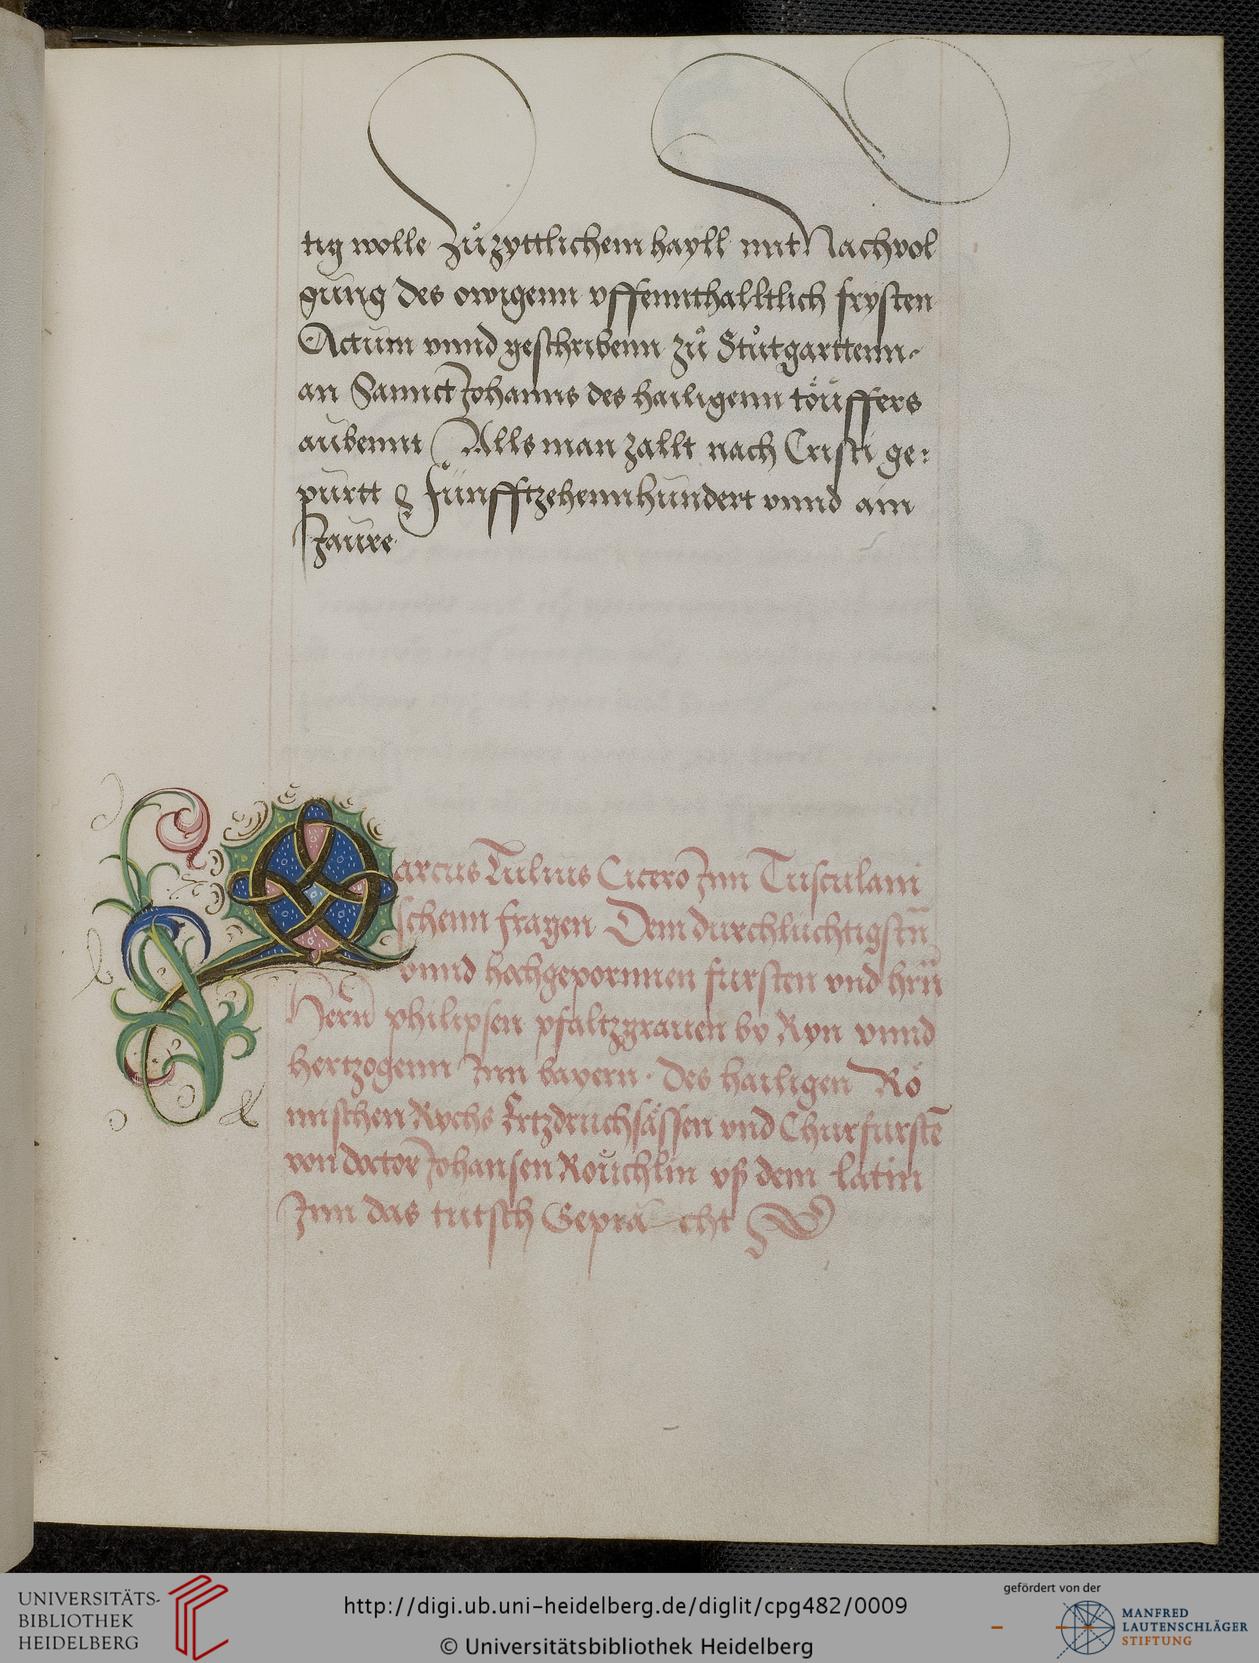 tig wolle Zů zyttlichem hayll mit Nachvol
gung des owigenn vffennthalltlich frysten
Actum vnnd geschribenn zů Stůtgarttenn
an Sannct Johanns des hailigenn töuffers
aubennt Alls man zallt nach Cristi ge:
purtt Fünfftzehennhundert vnnd ain
Jaure
arcus Tulius Cicero Jnn Tusculani
schenn fragen Dem durchluchtigstn̄
vnnd hochgepornnen fursten vnd hrn̄
Hern̄ philipsen pfaltzgrauen by Ryn vnnd
hertzogenn Jnn bayern · des hailigen Rö
mischen Rychs Ertzdruchsässen vnd Churfurstē
von doctor Johansen Roüchlin vß dem latin
Jnn das tutsch Geprächt
UNIVERSITÄTS-
BIBLIOTHEK
HEIDELBERG
http://digi.ub.uni-heidelberg.de/diglit/cpg482/0009
© Universitätsbibliothek Heidelberg
gefördert von der
MANFRED
LAUTENSCHLÄGER
STIFTUNG